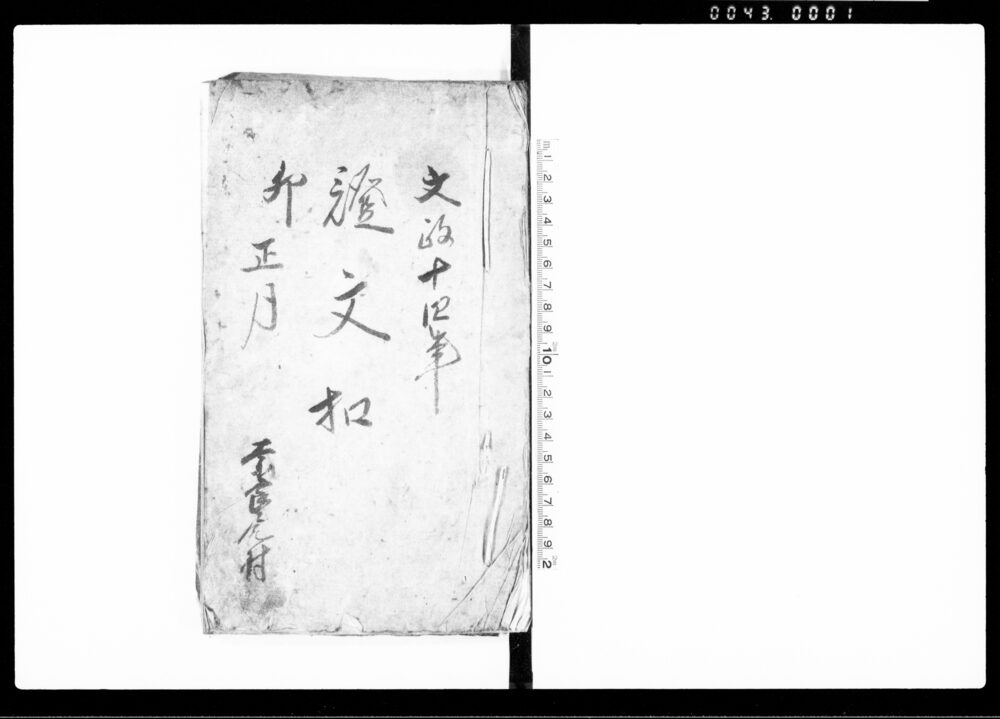 0043. 0001
文政十四年
證文扣
卯正月
村
m 1 2 3 4 5 6 7 8 9 10 1 2 3 4 5 6 7 8 9 2